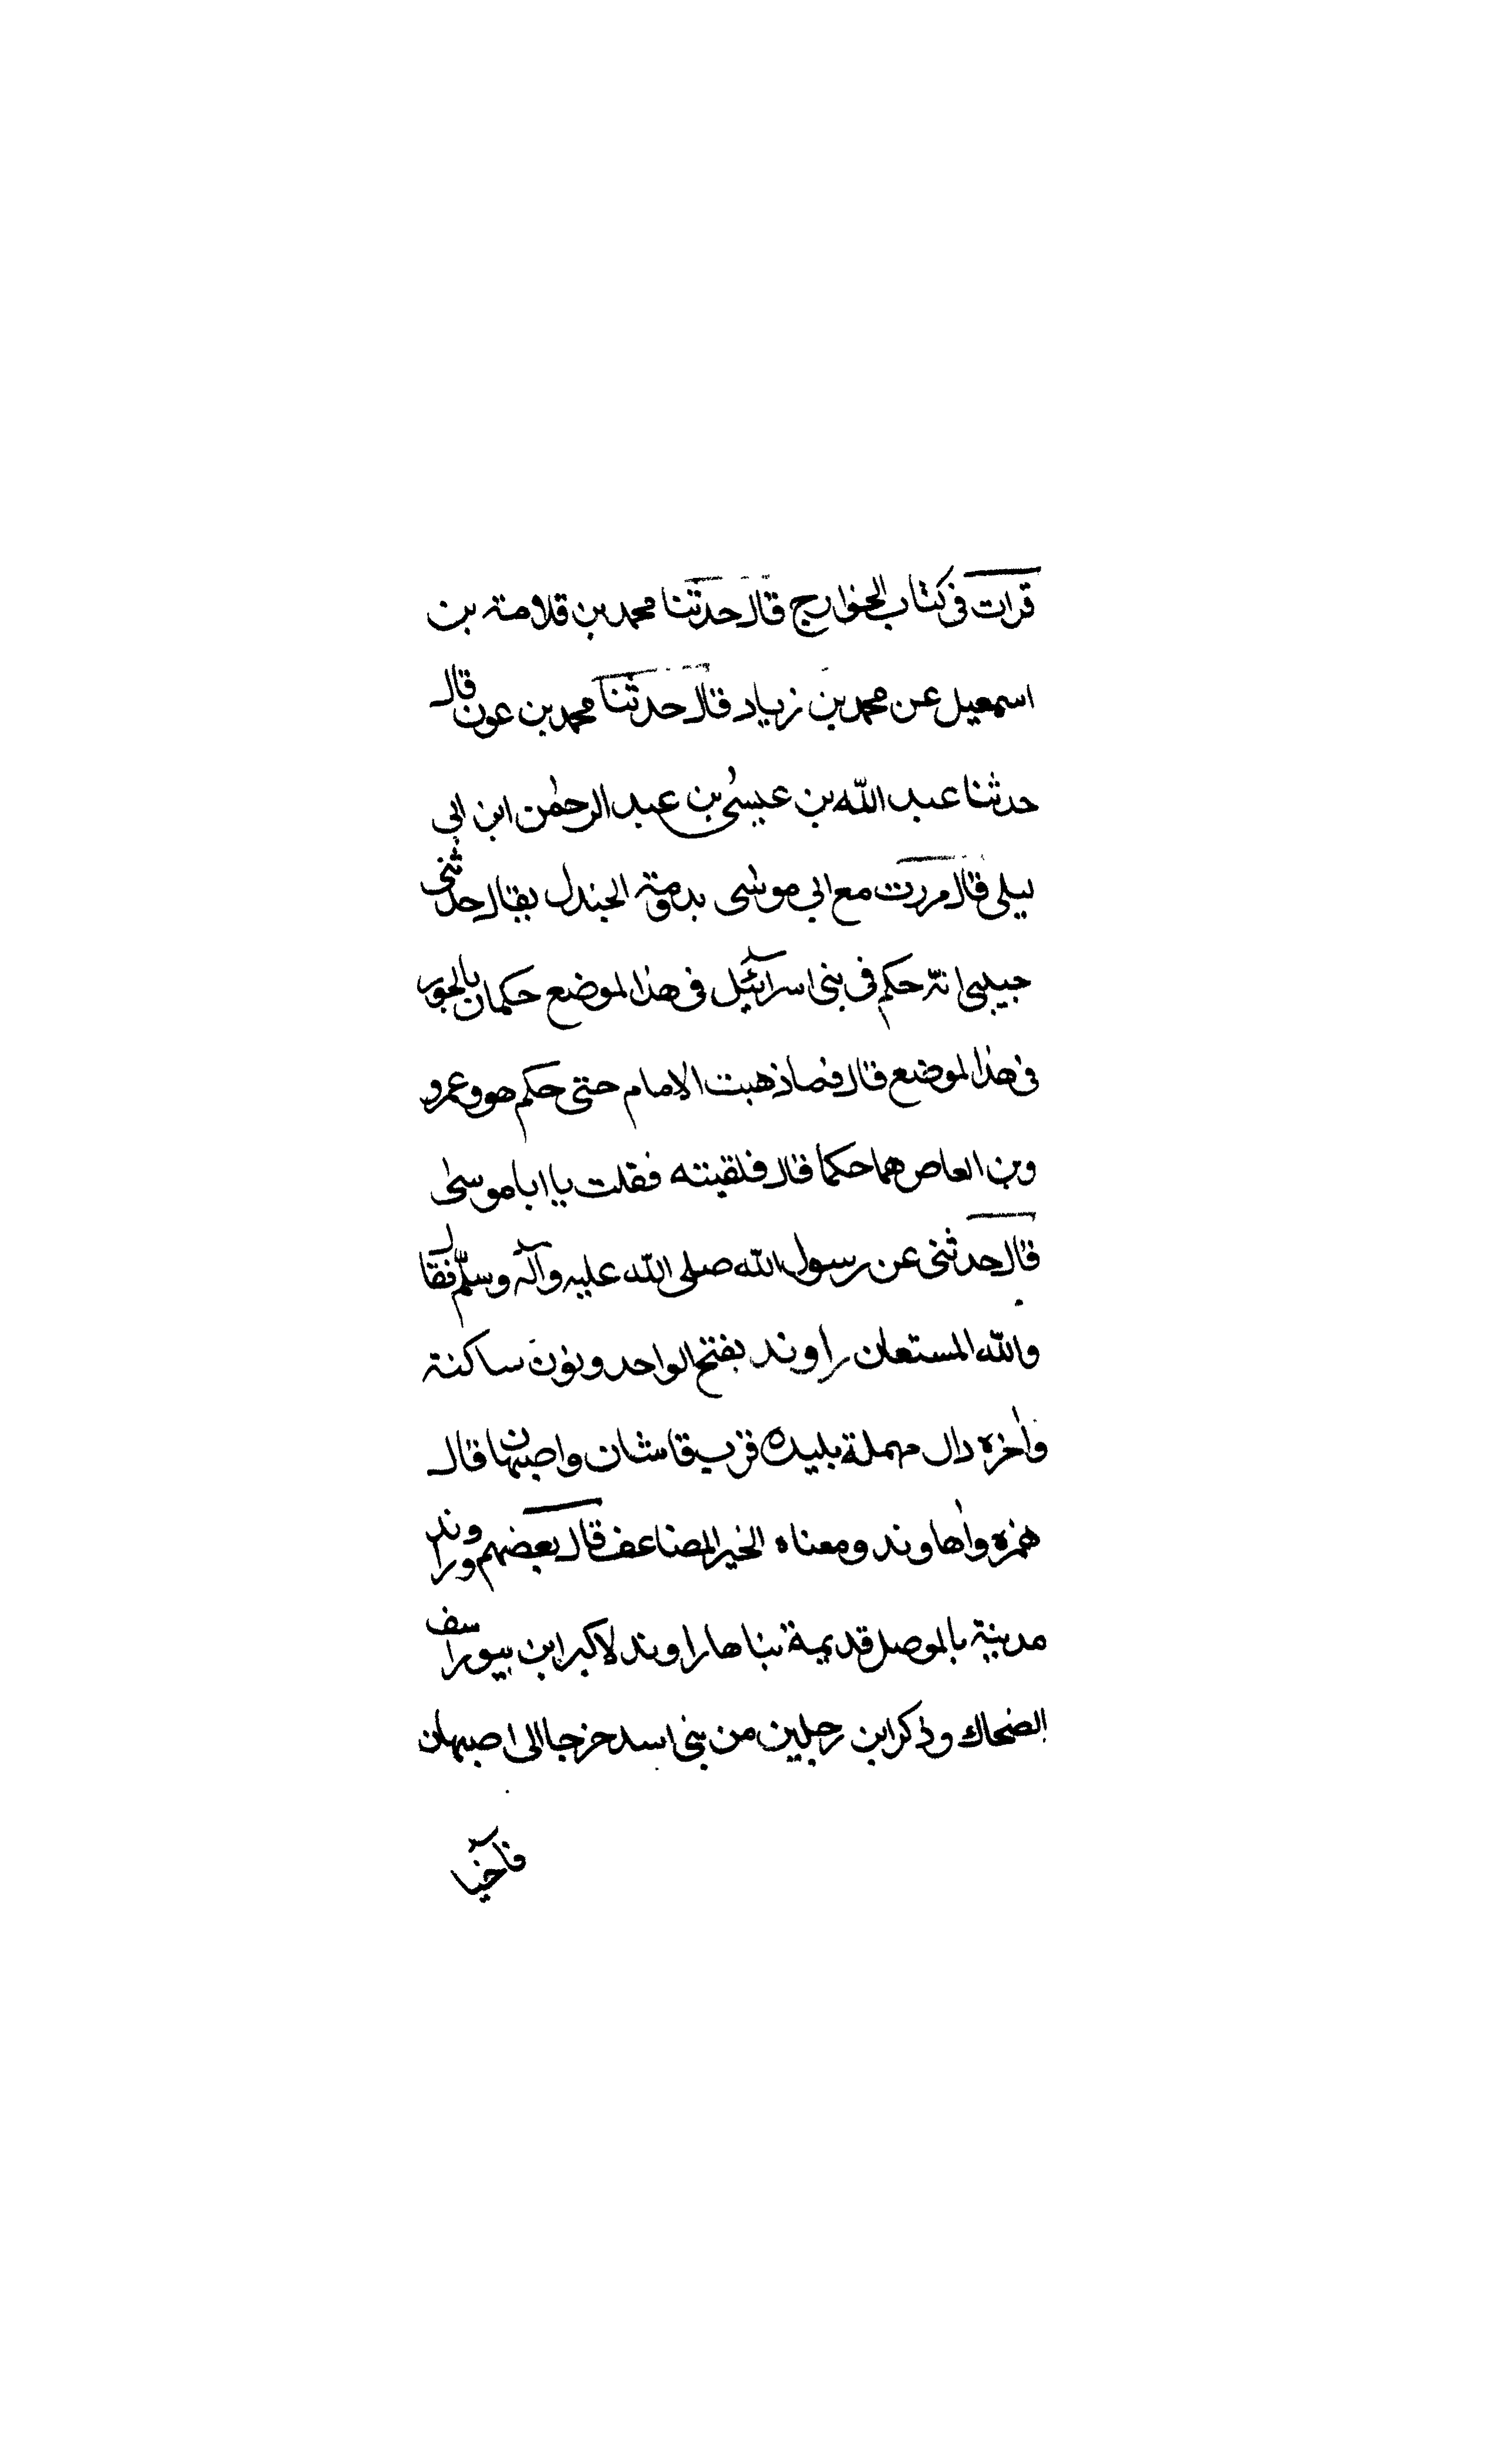 قرات فى كتاب الخوارج قال حدثنا محمد بن قلامة بن
اسمعيل عن محمد بن زياد قال حدثنا محمد بن عون قال
حدثنا عبد الله بن عيسى بن عبد الرحمن ابن ابى
ليلى قال مررت مع ابى موسى بدومة الجندل بقال حدثنى
حبيبى انه حكم فى بنى اسرآئيل فى هذا الموضع حكمان بالجور
فى هذا الموضع قال فماذهبت الامام حتى حكم هو وعمرو
وبن العاص هما حكما قال فلقيته فقلت يا ابا موسى
قال حدثنى عن رسول الله صلى الله عليه وآله وسلم فقال
والله المستعان راوند بفتح الواحد ونون ساكنة
واخره دال مهملة بليده قرب قاشان واصبهان قال
همزه واهاوند ومعناه الخير المضاعف قال بعضهم وراوند
مدينة بالموصل قديمة بناها راوند لاكبر ابن بيوراسف
الضحاك وذكر ابن رجلين من بنى اسد خرجا الى اصبهان
فآخيا